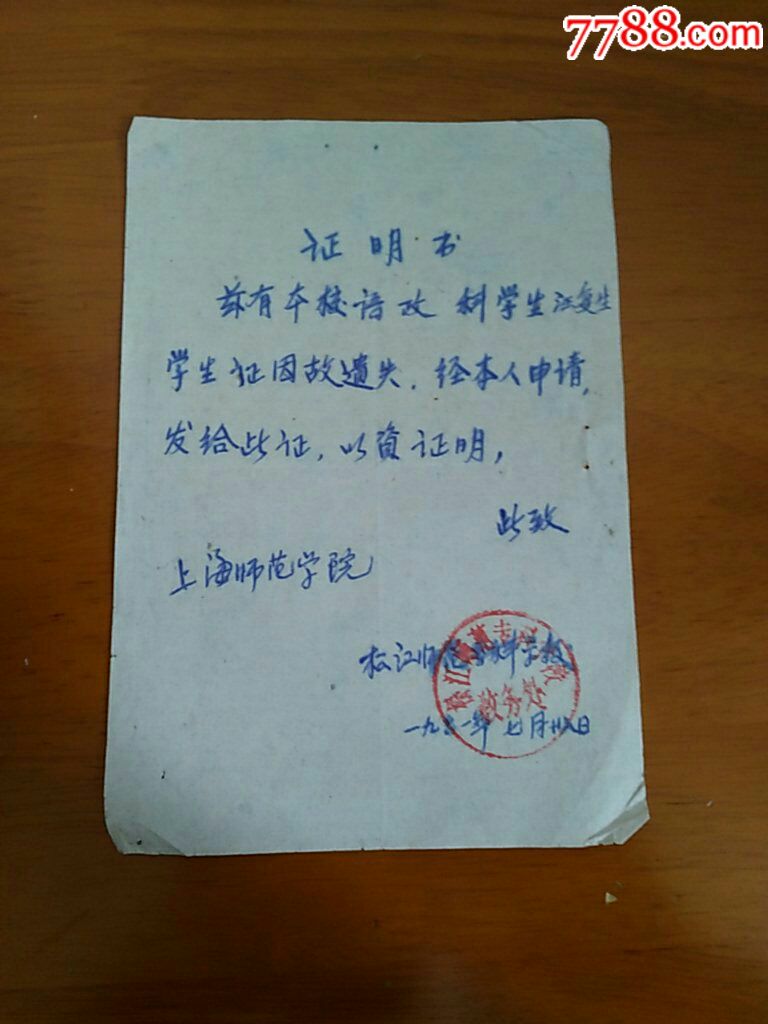 7788.com
证明书
兹有本校语政 科学生江复生
学生证因故遗失，经本人申请，
发给此证，以资证明，
此致
上海师范学院
松江师范专科学校
教务处
一九六一年 七月廿八日